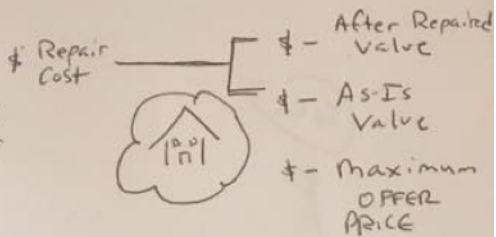 $ Repair
Cost
$ - After Repaired
Value
$ - As-Is
Value
$ - Maximum
OFFER
PRICE